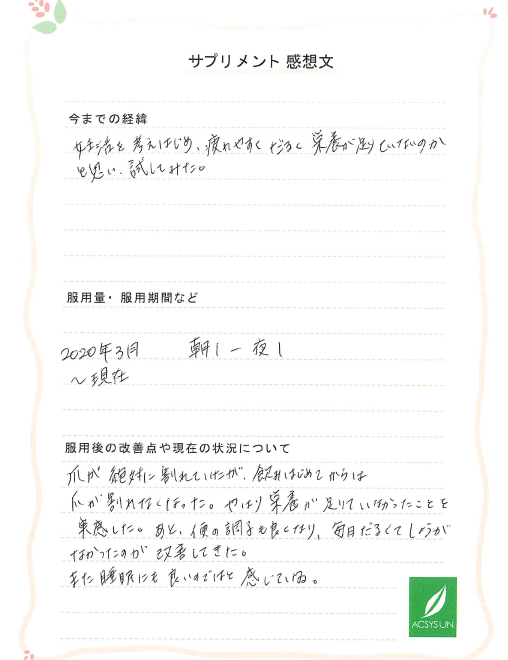 サプリメント 感想文
今までの経緯
妊活を考えはじめ、疲れやすくだるく栄養が足りていないのか
と思い、試してみた。
服用量・服用期間など
2020年3月 朝1ー夜1
～現在
服用後の改善点や現在の状況について
爪が絶対に割れていたが、飲みはじめてからは
爪が割れなくなった。やはり栄養が足りていなかったことを
実感した。あと、便の調子も良くなり、毎日だるくてしょうが
なかったのが改善してきた。
また睡眠にも良いのではと感じている。
ACSYSUN